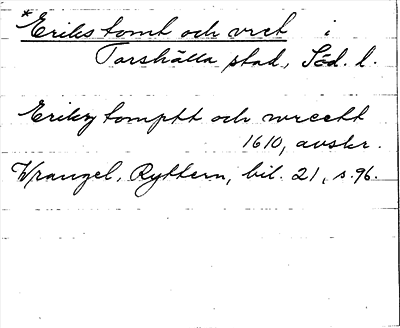 *Eriks tomt och vret i
Torshälla stad, Söd. l.
Erikz tomptt och wreett
1610, avskr.
Wrangel, Ryttern, bil. 21, s. 96.